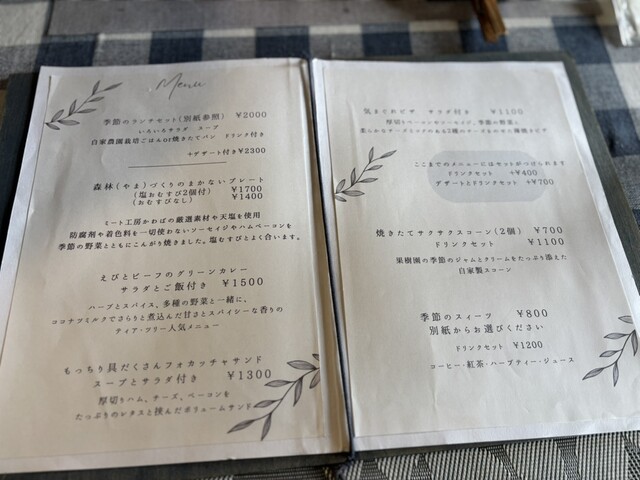 Menu
季節のランチセット(別紙参照) ¥2000
いろいろサラダ スープ
自家農園栽培ごはんor焼きたてパン ドリンク付き
+デザート付き¥2300
森林(やま)づくりのまかないプレート
(塩おむすび2個付) ¥1700
(おむすびなし) ¥1400
ミート工房かわばの厳選素材や天塩を使用
防腐剤や着色料を一切使わないソーセイジやハムベーコンを
季節の野菜とともにこんがり焼きました。塩むすびとよく合います。
えびとビーフのグリーンカレー
サラダとご飯付き ¥1500
ハーブとスパイス、多種の野菜と一緒に、
ココナツミルクでさらりと煮込んだ甘さとスパイシーな香りの
ティア・ツリー人気メニュー
もっちり具だくさんフォカッチャサンド
スープとサラダ付き ¥1300
厚切りハム、チーズ、ベーコンを
たっぷりのレタスと挟んだボリュームサンド
気まぐれピザ サラダ付き ¥1100
ここまでのメニューにはセットがつけられます
ドリンクセット +¥400
デザートとドリンクセット +¥700
焼きたてサクサクスコーン(2個) ¥700
ドリンクセット ¥1100
果樹園の季節のジャムとクリームをたっぷり添えた
自家製スコーン
季節のスィーツ ¥800
別紙からお選びください
ドリンクセット ¥1200
コーヒー・紅茶・ハーブティー・ジュース